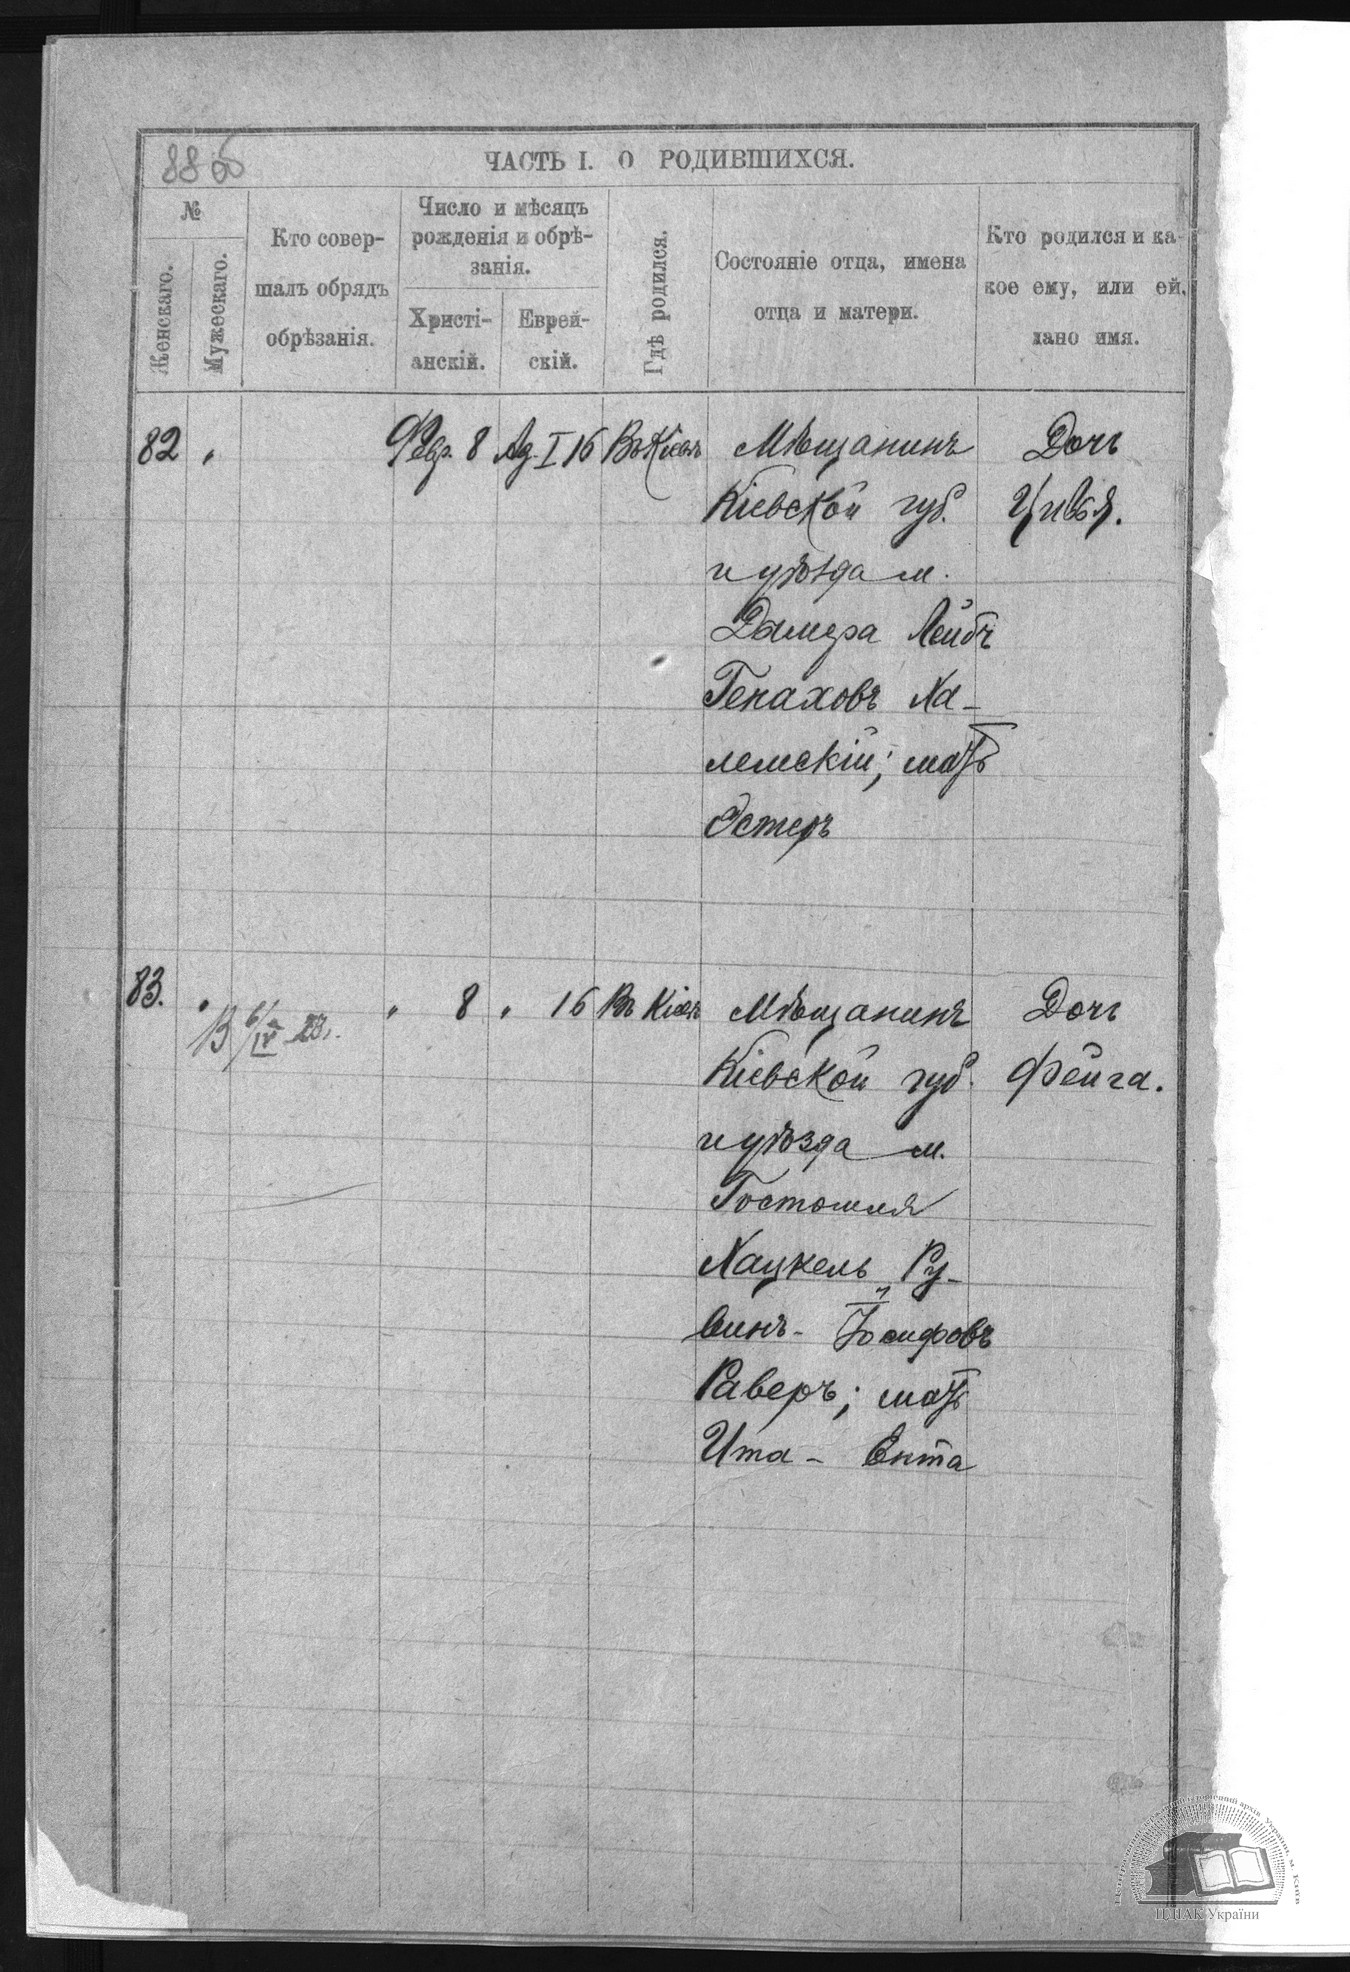 88 об
ЧАСТЬ I. О РОДИВШИХСЯ.
№
Женскаго.
Мужескаго.
Кто совер-
шалъ обрядъ
обрѣзанія.
Число и мѣсяцъ
рожденія и обрѣ-
занія.
Христі-
анскій.
Еврей-
скій.
Гдѣ родился.
Состояніе отца, имена
отца и матери.
Кто родился и ка-
кое ему, или ей,
дано имя.
82 " Февр. 8 Ад. I 16 Въ Кіевѣ Мѣщанинъ Дочь
Кіевской губ. Цивья.
и уѣзда м.
Дымера Лейбъ
Генаховъ Ха-
лемскій; мать
Эстеръ
83. " " 8 " 16 Въ Кіевѣ Мѣщанинъ Дочь
В 6/IV 23.
Кіевской губ. Фейга.
и уѣзда м.
Гостомля
Хацкель Ру-
винъ - Іосифовъ
Раверъ; мать
Ита - Ента
ЦДІАК України